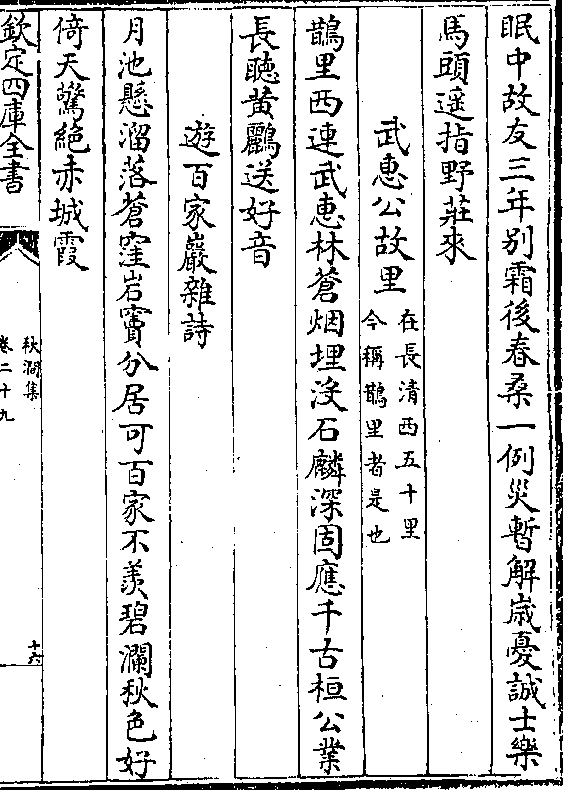 眠中故友三年别霜後春桑一例災暫解嵗憂誠士樂
馬頭遥指野莊來
武惠公故里
在長清西五十里
今稱鵲里者是也
鵲里西連武惠林蒼烟埋没石麟深固應千古桓公業
長聴黄鸝送好音
遊百家巖雜詩
月池懸溜落蒼窪岩竇分居可百家不羡碧瀾秋色好
倚天驚絶赤城霞
欽定四庫全書
秋澗集
卷二十九
十六